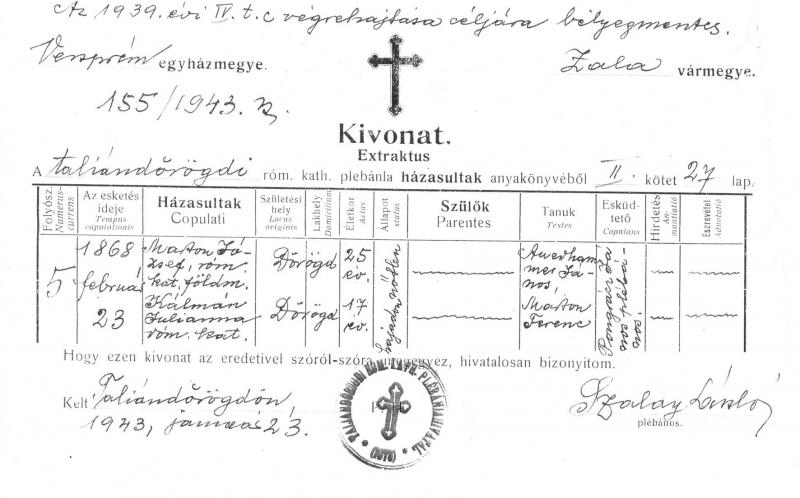 Az 1939. évi IV. t. c végrehajtása céljára bélyegmentes.
Veszprém egyházmegye.
Zala vármegye.
155/1943. sz.
Kivonat.
Extraktus
A taliándörögdi róm. kath. plebánia házasultak anyakönyvéből II. kötet 27 lap.
Folyósz. Numerus currens
Az esketés ideje Tempus capulationis
Házasultak Copulati
Születési hely Locus originis
Lakhely Domicilium
Életkor Aetas
Állapot status
Szülők Parentes
Tanuk Testes
Esküdtető Copulans
Hirdetés Annuntiatió
Észrevétel Adnotatió
5
1868
február
23
Marton Jó-
zsef, róm.
kat. földm.
Dörögd
25
év.
nőtlen
János,
Kálmán
Julianna
róm. kat.
Dörögd
17
év.
hajadon
Marton
Ferenc
Pongrácz Já-
nos plébá-
nos.
Hogy ezen kivonat az eredetivel szóról-szóra megegyez, hivatalosan bizonyitom.
Kelt Taliándörögdön,
1943, január 23.
TALIÁNDÖRÖGDI RÓM. KATH. PLÉBÁNIAHIVATAL
Szalay László
plébános.